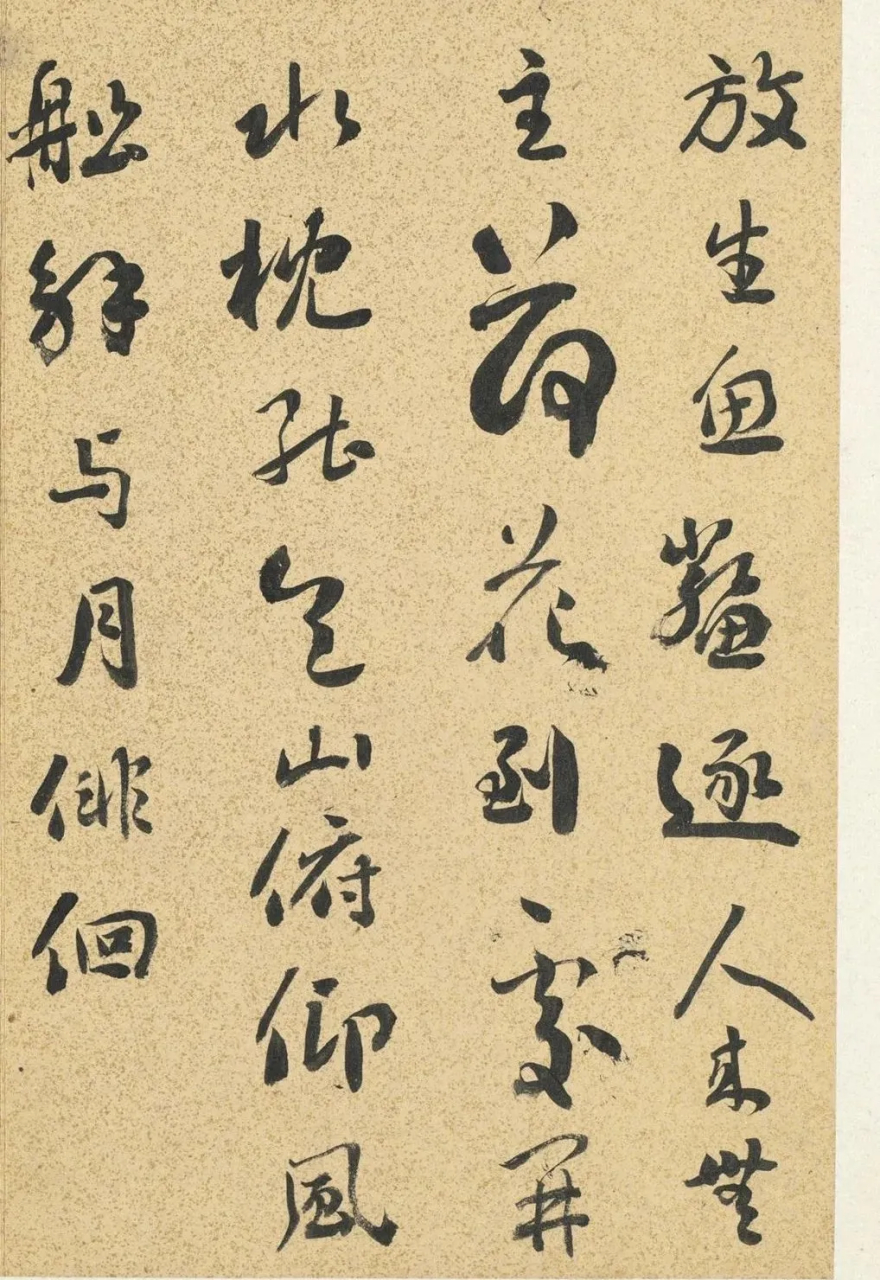 放生魚鱉逐人来無
主荷花到處開
水枕能令山俯仰風
船解与月俳佪